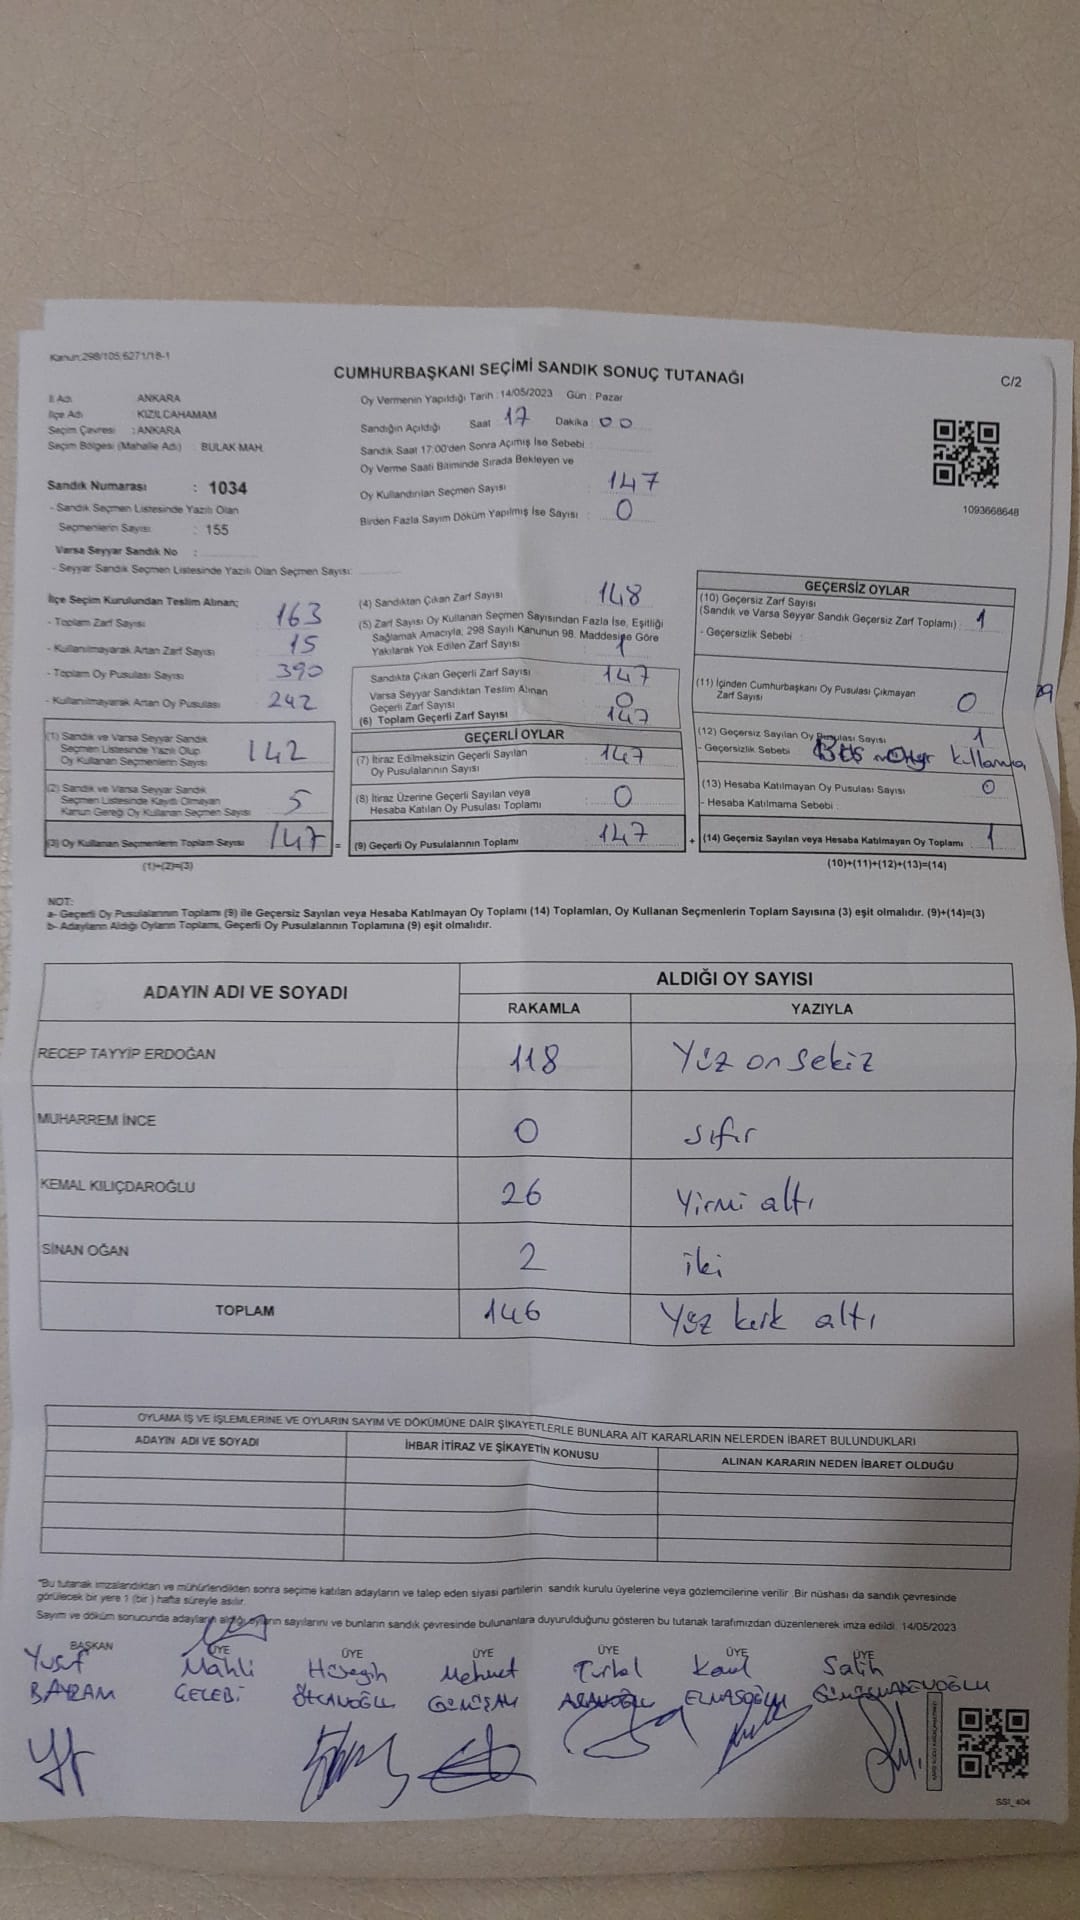 Kanun:298/105;6271/18-1
CUMHURBAŞKANI SEÇİMİ SANDIK SONUÇ TUTANAĞI
C/2
İl Adı ANKARA
İlçe Adı : KIZILCAHAMAM
Seçim Çevresi : ANKARA
Seçim Bölgesi (Mahalle Adı) BULAK MAH.
Sandık Numarası : 1034
- Sandık Seçmen Listesinde Yazılı Olan
Seçmenlerin Sayısı : 155
Varsa Seyyar Sandık No :
- Seyyar Sandık Seçmen Listesinde Yazılı Olan Seçmen Sayısı:
Oy Vermenin Yapıldığı Tarih : 14/05/2023 Gün : Pazar
Sandığın Açıldığı Saat 17 Dakika : 00
Sandık Saat 17:00'den Sonra Açılmış İse Sebebi
Oy Verme Saati Bitiminde Sırada Bekleyen ve
Oy Kullandırılan Seçmen Sayısı : 147
Birden Fazla Sayım Döküm Yapılmış İse Sayısı : 0
1093668648
İlçe Seçim Kurulundan Teslim Alınan;
- Toplam Zarf Sayısı 163
- Kullanılmayarak Artan Zarf Sayısı 15
- Toplam Oy Pusulası Sayısı 390
- Kullanılmayarak Artan Oy Pusulası 242
(1) Sandık ve Varsa Seyyar Sandık
Seçmen Listesinde Yazılı Olup
Oy Kullanan Seçmenlerin Sayısı 142
(2) Sandık ve Varsa Seyyar Sandık
Seçmen Listesinde Kayıtlı Olmayan
Kanun Gereği Oy Kullanan Seçmen Sayısı 5
(3) Oy Kullanan Seçmenlerin Toplam Sayısı 147 =
(1)+(2)=(3)
(4) Sandıktan Çıkan Zarf Sayısı 148
(5) Zarf Sayısı Oy Kullanan Seçmen Sayısından Fazla İse, Eşitliği
Sağlamak Amacıyla, 298 Sayılı Kanunun 98. Maddesine Göre
Yakılarak Yok Edilen Zarf Sayısı 1
Sandıkta Çıkan Geçerli Zarf Sayısı 147
Varsa Seyyar Sandıktan Teslim Alınan
Geçerli Zarf Sayısı 0
(6) Toplam Geçerli Zarf Sayısı 147
GEÇERLİ OYLAR
(7) İtiraz Edilmeksizin Geçerli Sayılan
Oy Pusulalarının Sayısı 147
(8) İtiraz Üzerine Geçerli Sayılan veya
Hesaba Katılan Oy Pusulası Toplamı 0
(9) Geçerli Oy Pusulalarının Toplamı 147 +
GEÇERSİZ OYLAR
(10) Geçersiz Zarf Sayısı
(Sandık ve Varsa Seyyar Sandık Geçersiz Zarf Toplamı) : 1
- Geçersizlik Sebebi :
(11) İçinden Cumhurbaşkanı Oy Pusulası Çıkmayan
Zarf Sayısı 0
(12) Geçersiz Sayılan Oy Pusulası Sayısı 1
- Geçersizlik Sebebi kullanma
(13) Hesaba Katılmayan Oy Pusulası Sayısı 0
- Hesaba Katılmama Sebebi :
(14) Geçersiz Sayılan veya Hesaba Katılmayan Oy Toplamı 1
(10)+(11)+(12)+(13)=(14)
NOT:
a- Geçerli Oy Pusulalarının Toplamı (9) ile Geçersiz Sayılan veya Hesaba Katılmayan Oy Toplamı (14) Toplamları, Oy Kullanan Seçmenlerin Toplam Sayısına (3) eşit olmalıdır. (9)+(14)=(3)
b- Adayların Aldığı Oyların Toplamı, Geçerli Oy Pusulalarının Toplamına (9) eşit olmalıdır.
ADAYIN ADI VE SOYADI
ALDIĞI OY SAYISI
RAKAMLA YAZIYLA
RECEP TAYYİP ERDOĞAN 118 Yüz on sekiz
MUHARREM İNCE 0 sıfır
KEMAL KILIÇDAROĞLU 26 Yirmi altı
SİNAN OĞAN 2 iki
TOPLAM 146 Yüz kırk altı
OYLAMA İŞ VE İŞLEMLERİNE VE OYLARIN SAYIM VE DÖKÜMÜNE DAİR ŞİKAYETLERLE BUNLARA AİT KARARLARIN NELERDEN İBARET BULUNDUKLARI
ADAYIN ADI VE SOYADI İHBAR İTİRAZ VE ŞİKAYETİN KONUSU ALINAN KARARIN NEDEN İBARET OLDUĞU
"Bu tutanak imzalandıktan ve mühürlendikten sonra seçime katılan adayların ve talep eden siyasi partilerin sandık kurulu üyelerine veya gözlemcilerine verilir. Bir nüshası da sandık çevresinde
görülecek bir yere 1 (bir) hafta süreyle asılır.
Sayım ve döküm sonucunda adayların aldığı oyların sayılarını ve bunların sandık çevresinde bulunanlara duyurulduğunu gösteren bu tutanak tarafımızdan düzenlenerek imza edildi. 14/05/2023
BAŞKAN ÜYE ÜYE ÜYE ÜYE ÜYE ÜYE
Yusuf Mahli Hüseyin Mehmet Kamil Salih
BAYRAM ÇELEBİ ELMASOĞLU
SSI_404